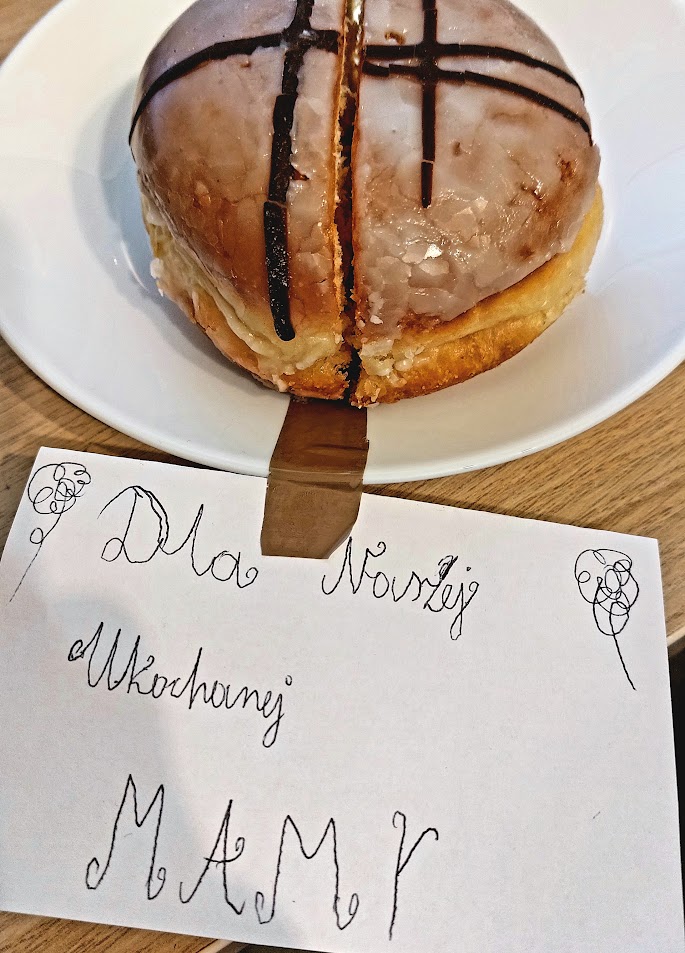 Dla Naszej
Ukochanej
MAMY